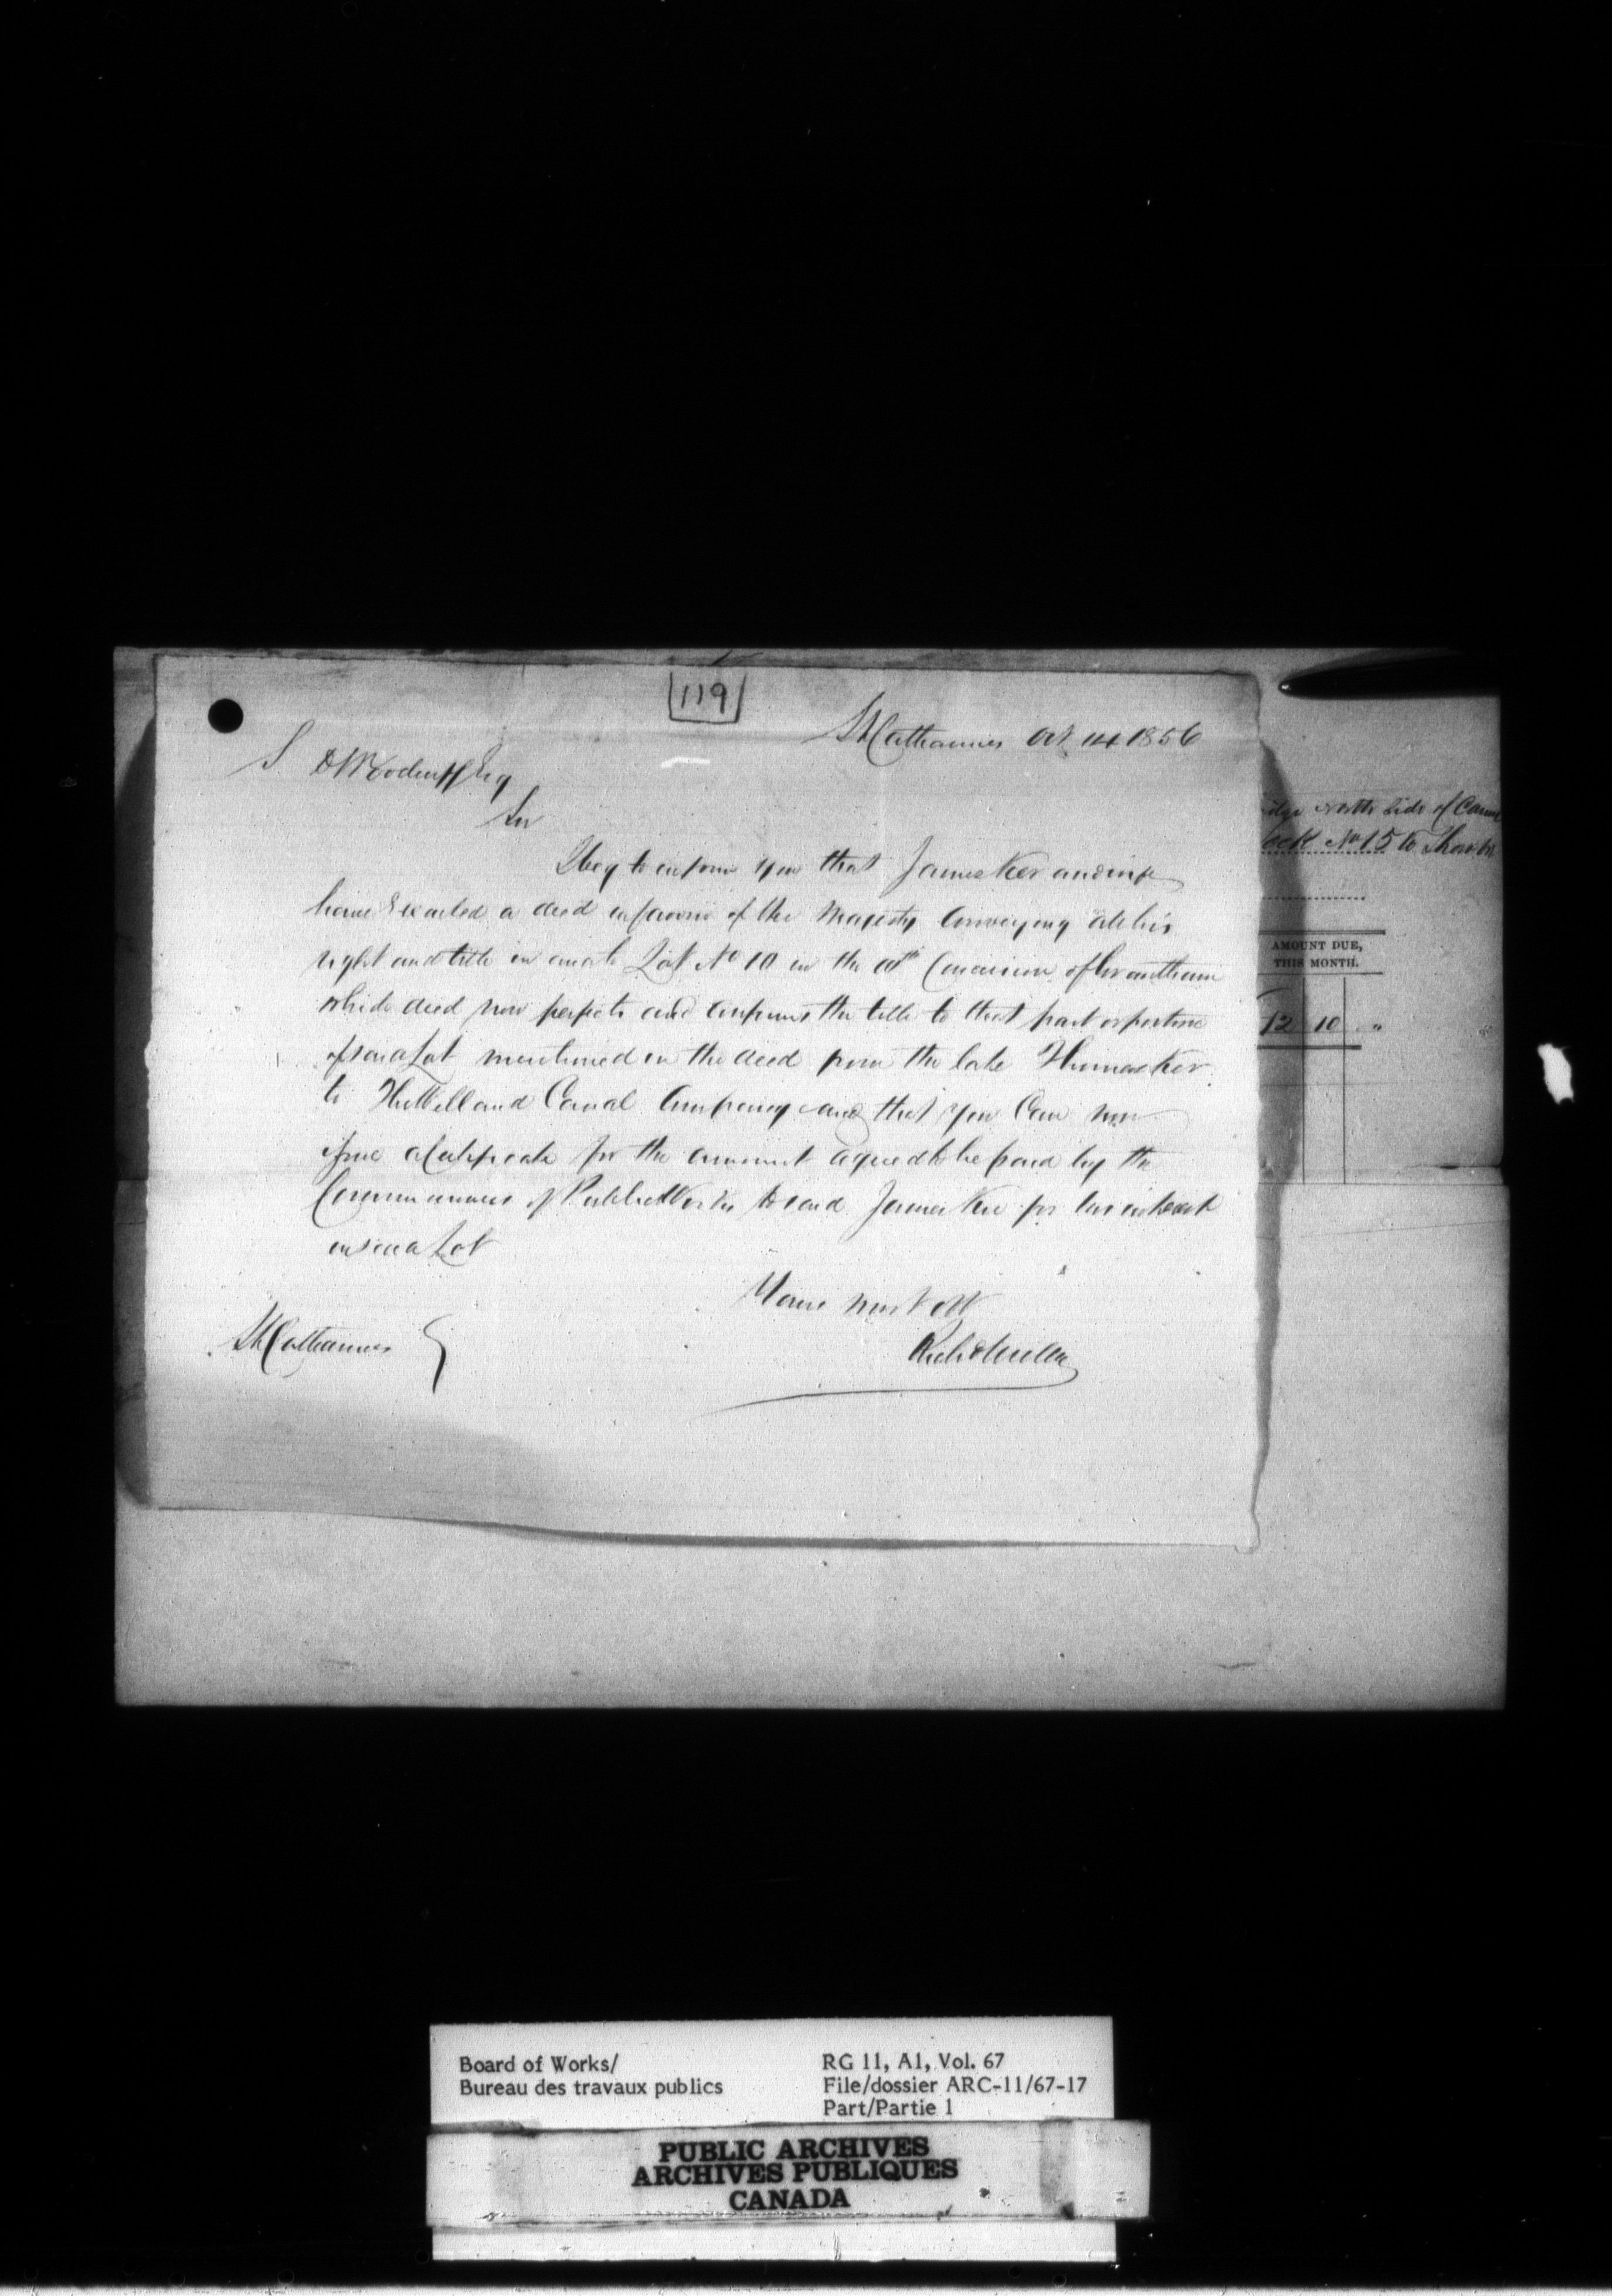 119
St Catharines Oct 14 1856
S D Woodruff Esq
Sir
I beg to inform you that James Ker and wife
have Executed a deed in favour of Her Majesty Conveying all his
right and title in and to Lot No 10 in the 10th Concession of Grantham
which deed now perfects and confirms the title to that part or portion
of said Lot mentioned in the deed from the late Thomas Ker
to The Welland Canal Company and that you Can now
issue a Certificate for the amount agreed to be paid by the
Commissioners of Public Works to said James Ker for his interest
in said Lot
Yours most obt
Richd Miller
St Catharines
North Side of Canal
No 15 to Thorold
AMOUNT DUE,
THIS MONTH.
12 10 "
Board of Works/
Bureau des travaux publics
RG 11, A1, Vol. 67
File/dossier ARC-11/67-17
Part/Partie 1
PUBLIC ARCHIVES
ARCHIVES PUBLIQUES
CANADA